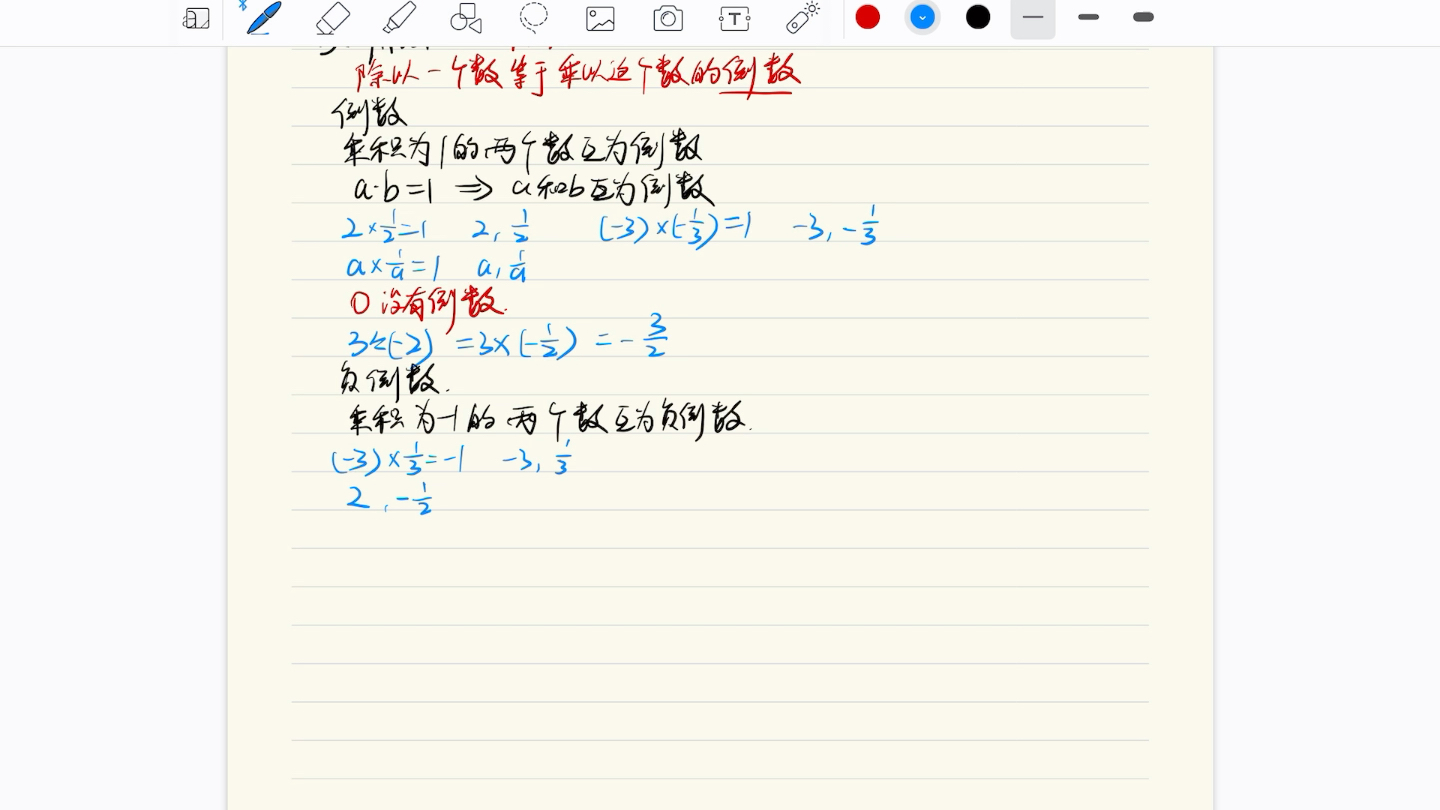 除以一个数等于乘以这个数的倒数
倒数
乘积为1的两个数互为倒数
a·b=1 ⇒ a和b互为倒数
2×1/2=1 2, 1/2 (-3)×(-1/3)=1 -3, -1/3
a×1/a=1 a, 1/a
0没有倒数.
3÷(-2) =3×(-1/2) =-3/2
负倒数.
乘积为-1的两个数互为负倒数.
(-3)×1/3=-1 -3, 1/3
2, -1/2